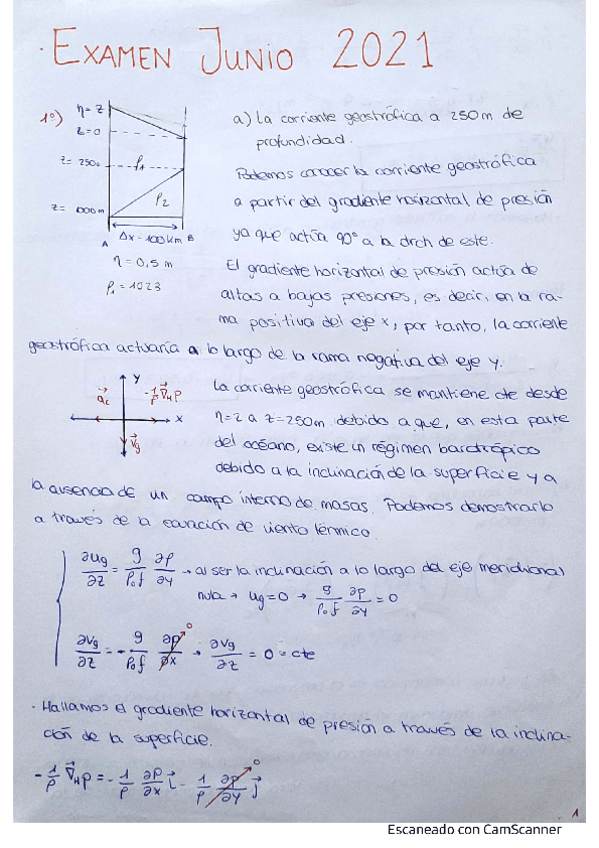 · EXAMEN JUNIO 2021
1º)
η= z
z=0
z= 250m
z= 1000m
ρ1
ρ2
A Δx = 100km B
η = 0,5 m
ρ1 = 1023
a) La corriente geostrófica a 250m de
profundidad.
Podemos conocer la corriente geostrófica
a partir del gradiente horizontal de presión
ya que actúa 90º a la drch de este.
El gradiente horizontal de presión actúa de
altas a bajas presiones, es decir, en la ra-
ma positiva del eje x, por tanto, la corriente
geostrófica actuaría a lo largo de la rama negativa del eje y.
y
x
a⃗c
-1/ρ ∇⃗H p
V⃗g
La corriente geostrófica se mantiene cte desde
η=z a z=250m debido a que, en esta parte
del océano, existe un régimen barotrópico
debido a la inclinación de la superficie y a
la ausencia de un campo interno de masas. Podemos demostrarlo
a través de la ecuación de viento térmico.
∂ug/∂z = g/ρ0f ∂ρ/∂y → al ser la inclinación a lo largo del eje meridional
nula → ug=0 → g/ρ0f ∂ρ/∂y = 0
∂vg/∂z = - g/ρ0f ∂ρ/∂x 0 → ∂vg/∂z = 0 = cte
· Hallamos el gradiente horizontal de presión a través de la inclina-
ción de la superficie.
-1/ρ ∇⃗H p = -1/ρ ∂p/∂x i⃗ - 1/ρ ∂p/∂y j⃗ 0
1
Escaneado con CamScanner